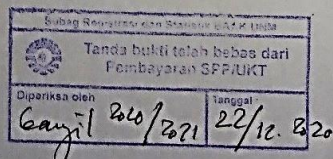 Subag Registrasi dan Statistik BAAK UNM
Tanda bukti telah bebas dari
Pembayaran SPP/UKT
Diperiksa oleh
Tanggal:
Ganjil 2020/2021
22/12.2020